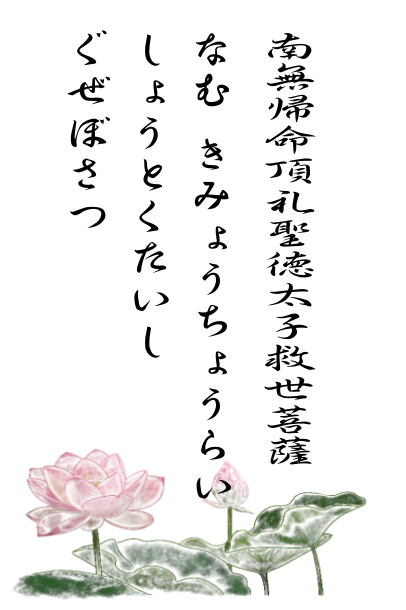 南無帰命頂礼聖徳太子救世菩薩
なむ きみょうちょうらい
しょうとくたいし
ぐぜぼさつ